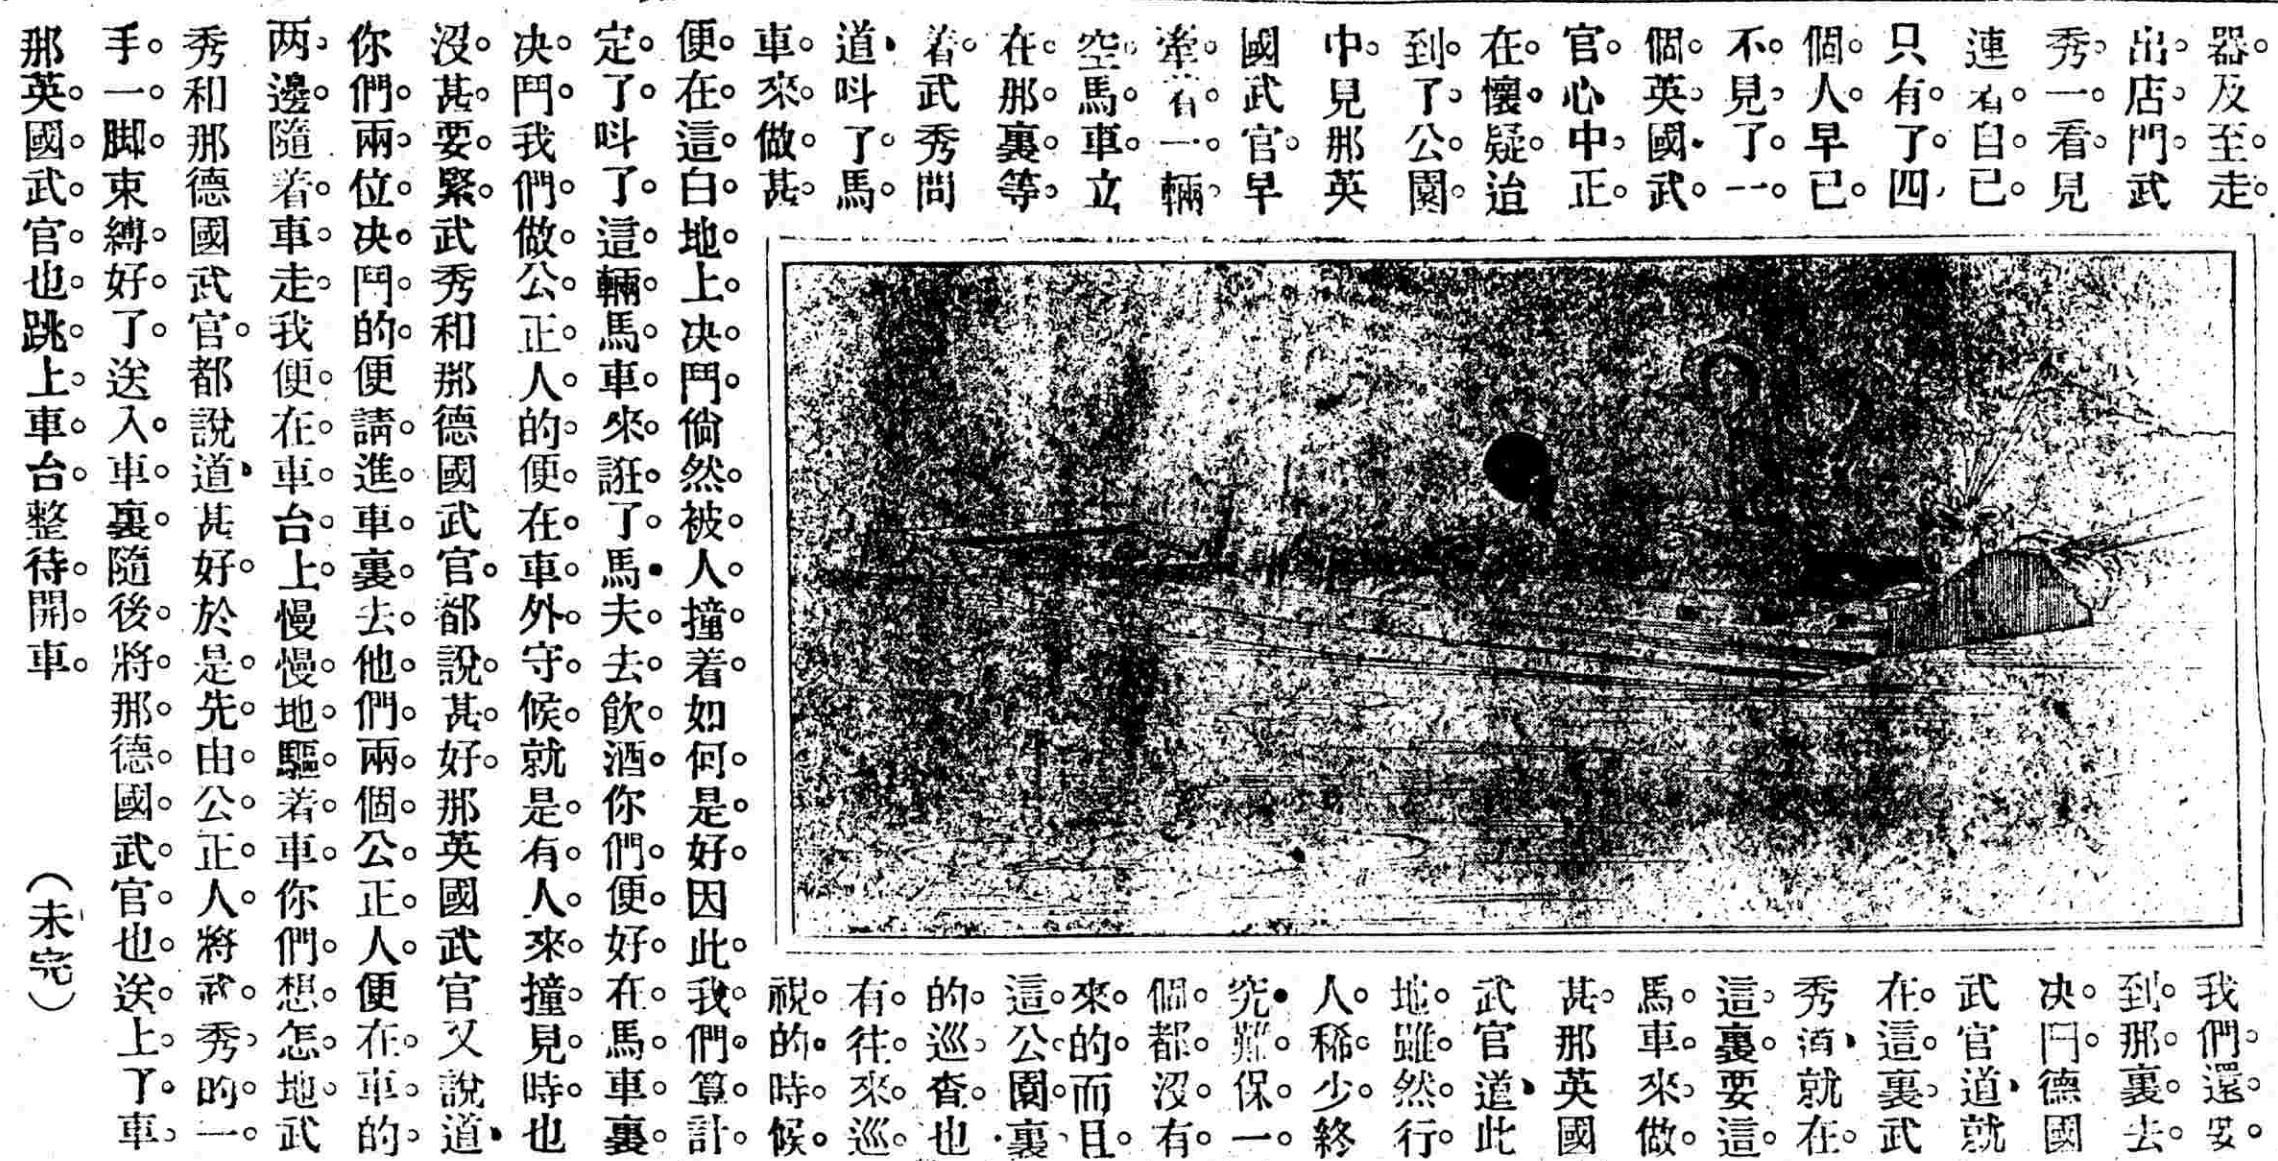 器。及至。走。
出。店。門。武
秀。一。看。見
連看。自。己。
只有。了。四
個。人。早已。
不。見。了。一。
個。英。國。武。
官。心中。正。
在。懷。疑。迨
到。了。公。園。
中。見那英
國武官。早
牽。着。一。輛。
空。馬。車。立
在。那。裏。等。
着。武秀問
道、呌了。馬。
車。來。做。甚。
我們。還。要。
到。那。裏。去。
决。鬥。德國
武官道、就
在。這。裏。武
秀道、就在。
這。裏。要。這。
馬。車。來。做。
甚。那英國
武官道、此
地。雖。然。行。
人。稀。少。終
究。難。保。一。
個。都。沒。有。
來。的。而且。
這。公。園。裏。
的。巡。查。也
有。往。來。巡。
視。的。時。候。
便。在。這。白。地。上。决。鬥。倘然。被。人。撞。着。如何。是。好。因此。我。們。算。計。
定。了。呌了。這。輛。馬。車。來。誑。了。馬。夫。去。飲。酒。你們。便。好。在。馬車。裏。
决。鬥。我們。做。公。正。人。的。便。在。車。外。守。候。就是。有。人。來。撞。見。時。也
沒。甚。要。緊。武秀和那德國武官。都說。甚。好。那英國武官又說道、
你們。兩。位。决。鬥。的。便請。進。車。裏去。他。們。兩。個。公。正。人。便在。車。的。
两。邊。隨着。車。走。我便。在。車。台。上。慢慢。地。驅。着。車。你們。想。怎。地。武
秀和那德國武官。都說道、甚好。於是。先。由。公。正。人。將武。秀。的。一。
手。一。脚。束縛。好。了。送入。車。裏。隨後。將。那。德。國。武官。也。送。上。了。車。
那英。國。武。官。也。跳。上。車。台。整待。開。車。
（未完）